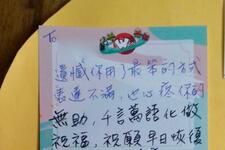 To
遺憾你用了最笨的方式
表達不滿，也心疼你的
無助，千言萬語化做
祝福，祝願早日恢復